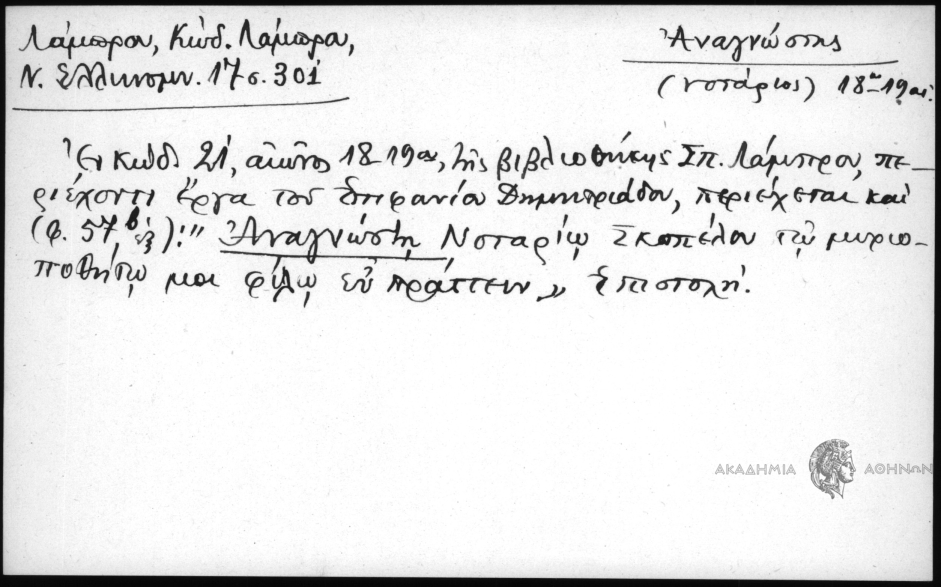 Λάμπρου, Κώδ. Λάμπρου,
Ν. Ἑλληνομν. 17 σ. 301
Ἀναγνώστης
(νοτάριος) 18ου-19ου αἰ.
Ἐν κώδ. 21, αἰῶνος 18-19ου, τῆς βιβλιοθήκης Σπ. Λάμπρου, πε-
ριέχοντι ἔργα τοῦ Ἐπιφανίου Δημητριάδου, περιέχεται καὶ
(φ. 57β ἑξ): "Ἀναγνώστῃ Νοταρίῳ Σκοπέλου τῷ μυριο-
ποθήτῳ μοι φίλῳ εὖ πράττειν" Ἐπιστολή.
ΑΚΑΔΗΜΙΑ ΑΘΗΝΩΝ